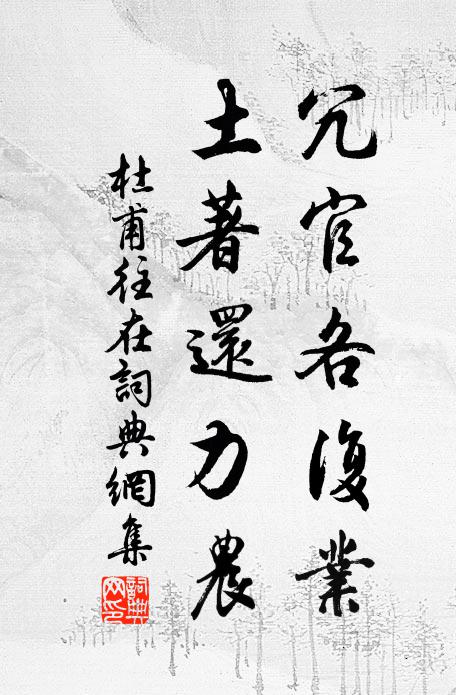 冗官各復業
土著還力農
杜甫往在詞典網集
詞典網印